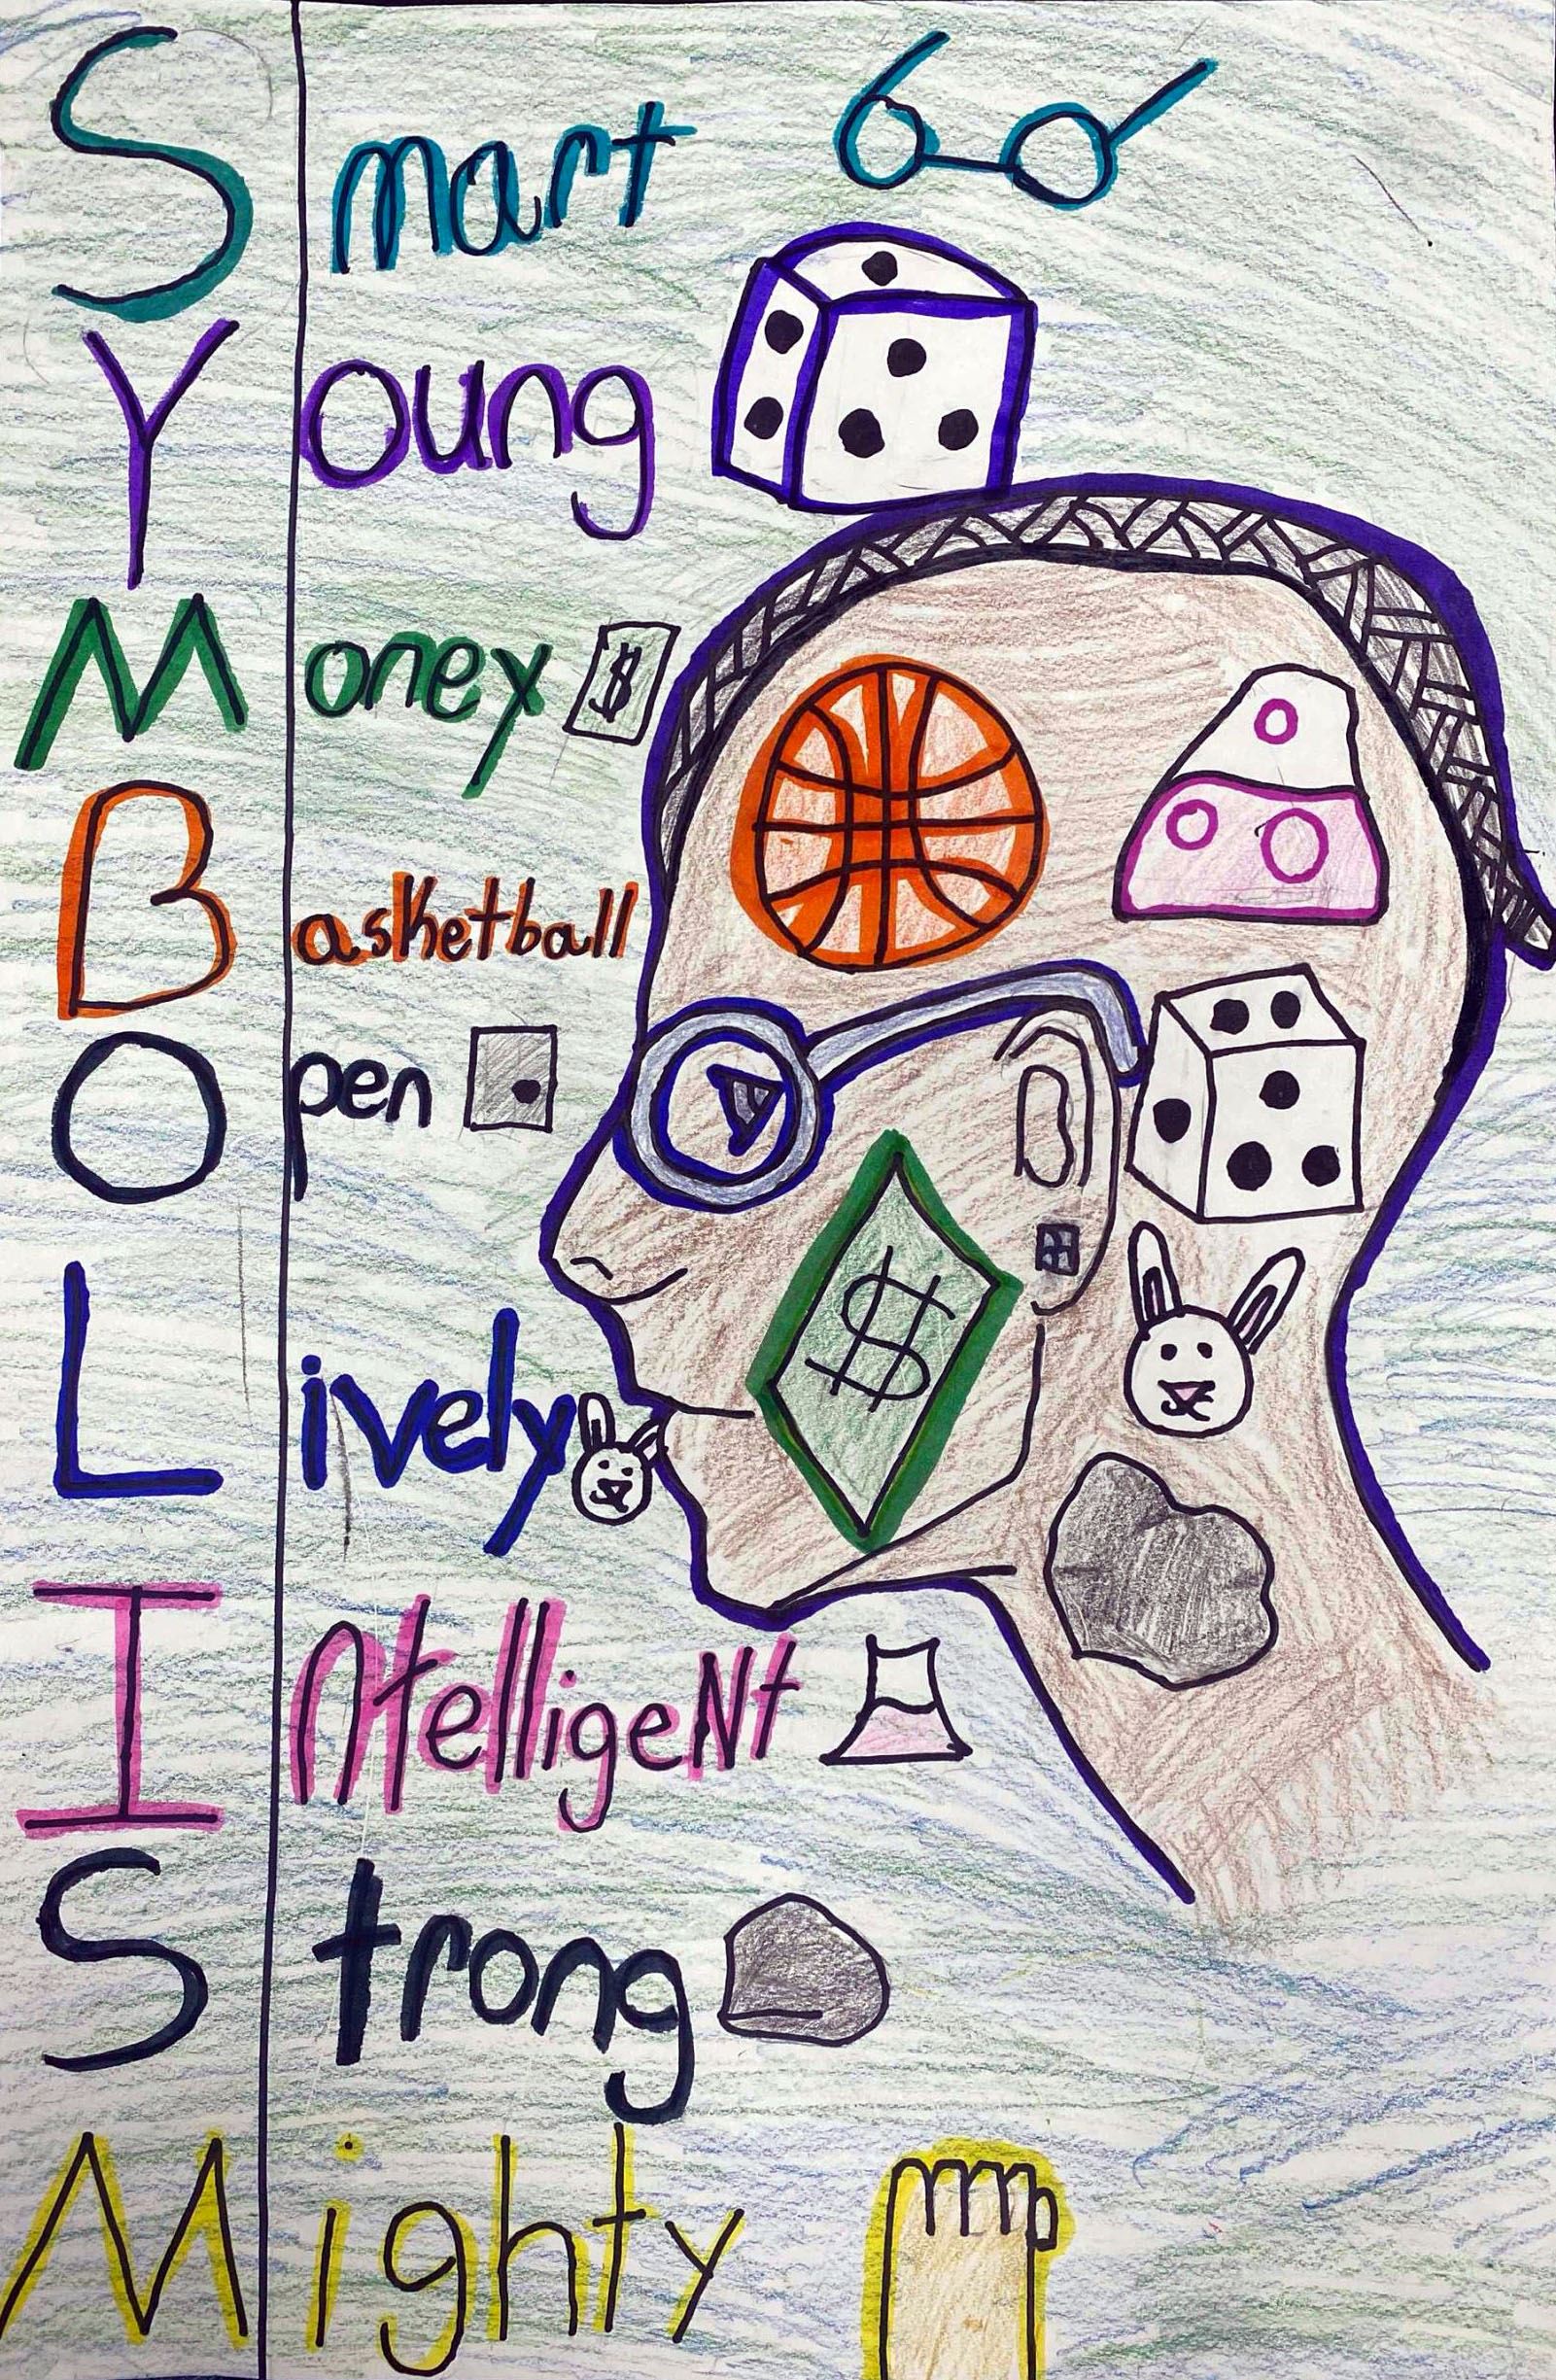 Smart
Young
Money $
Basketball
Open
Lively
$
Intelligent
Strong
Mighty